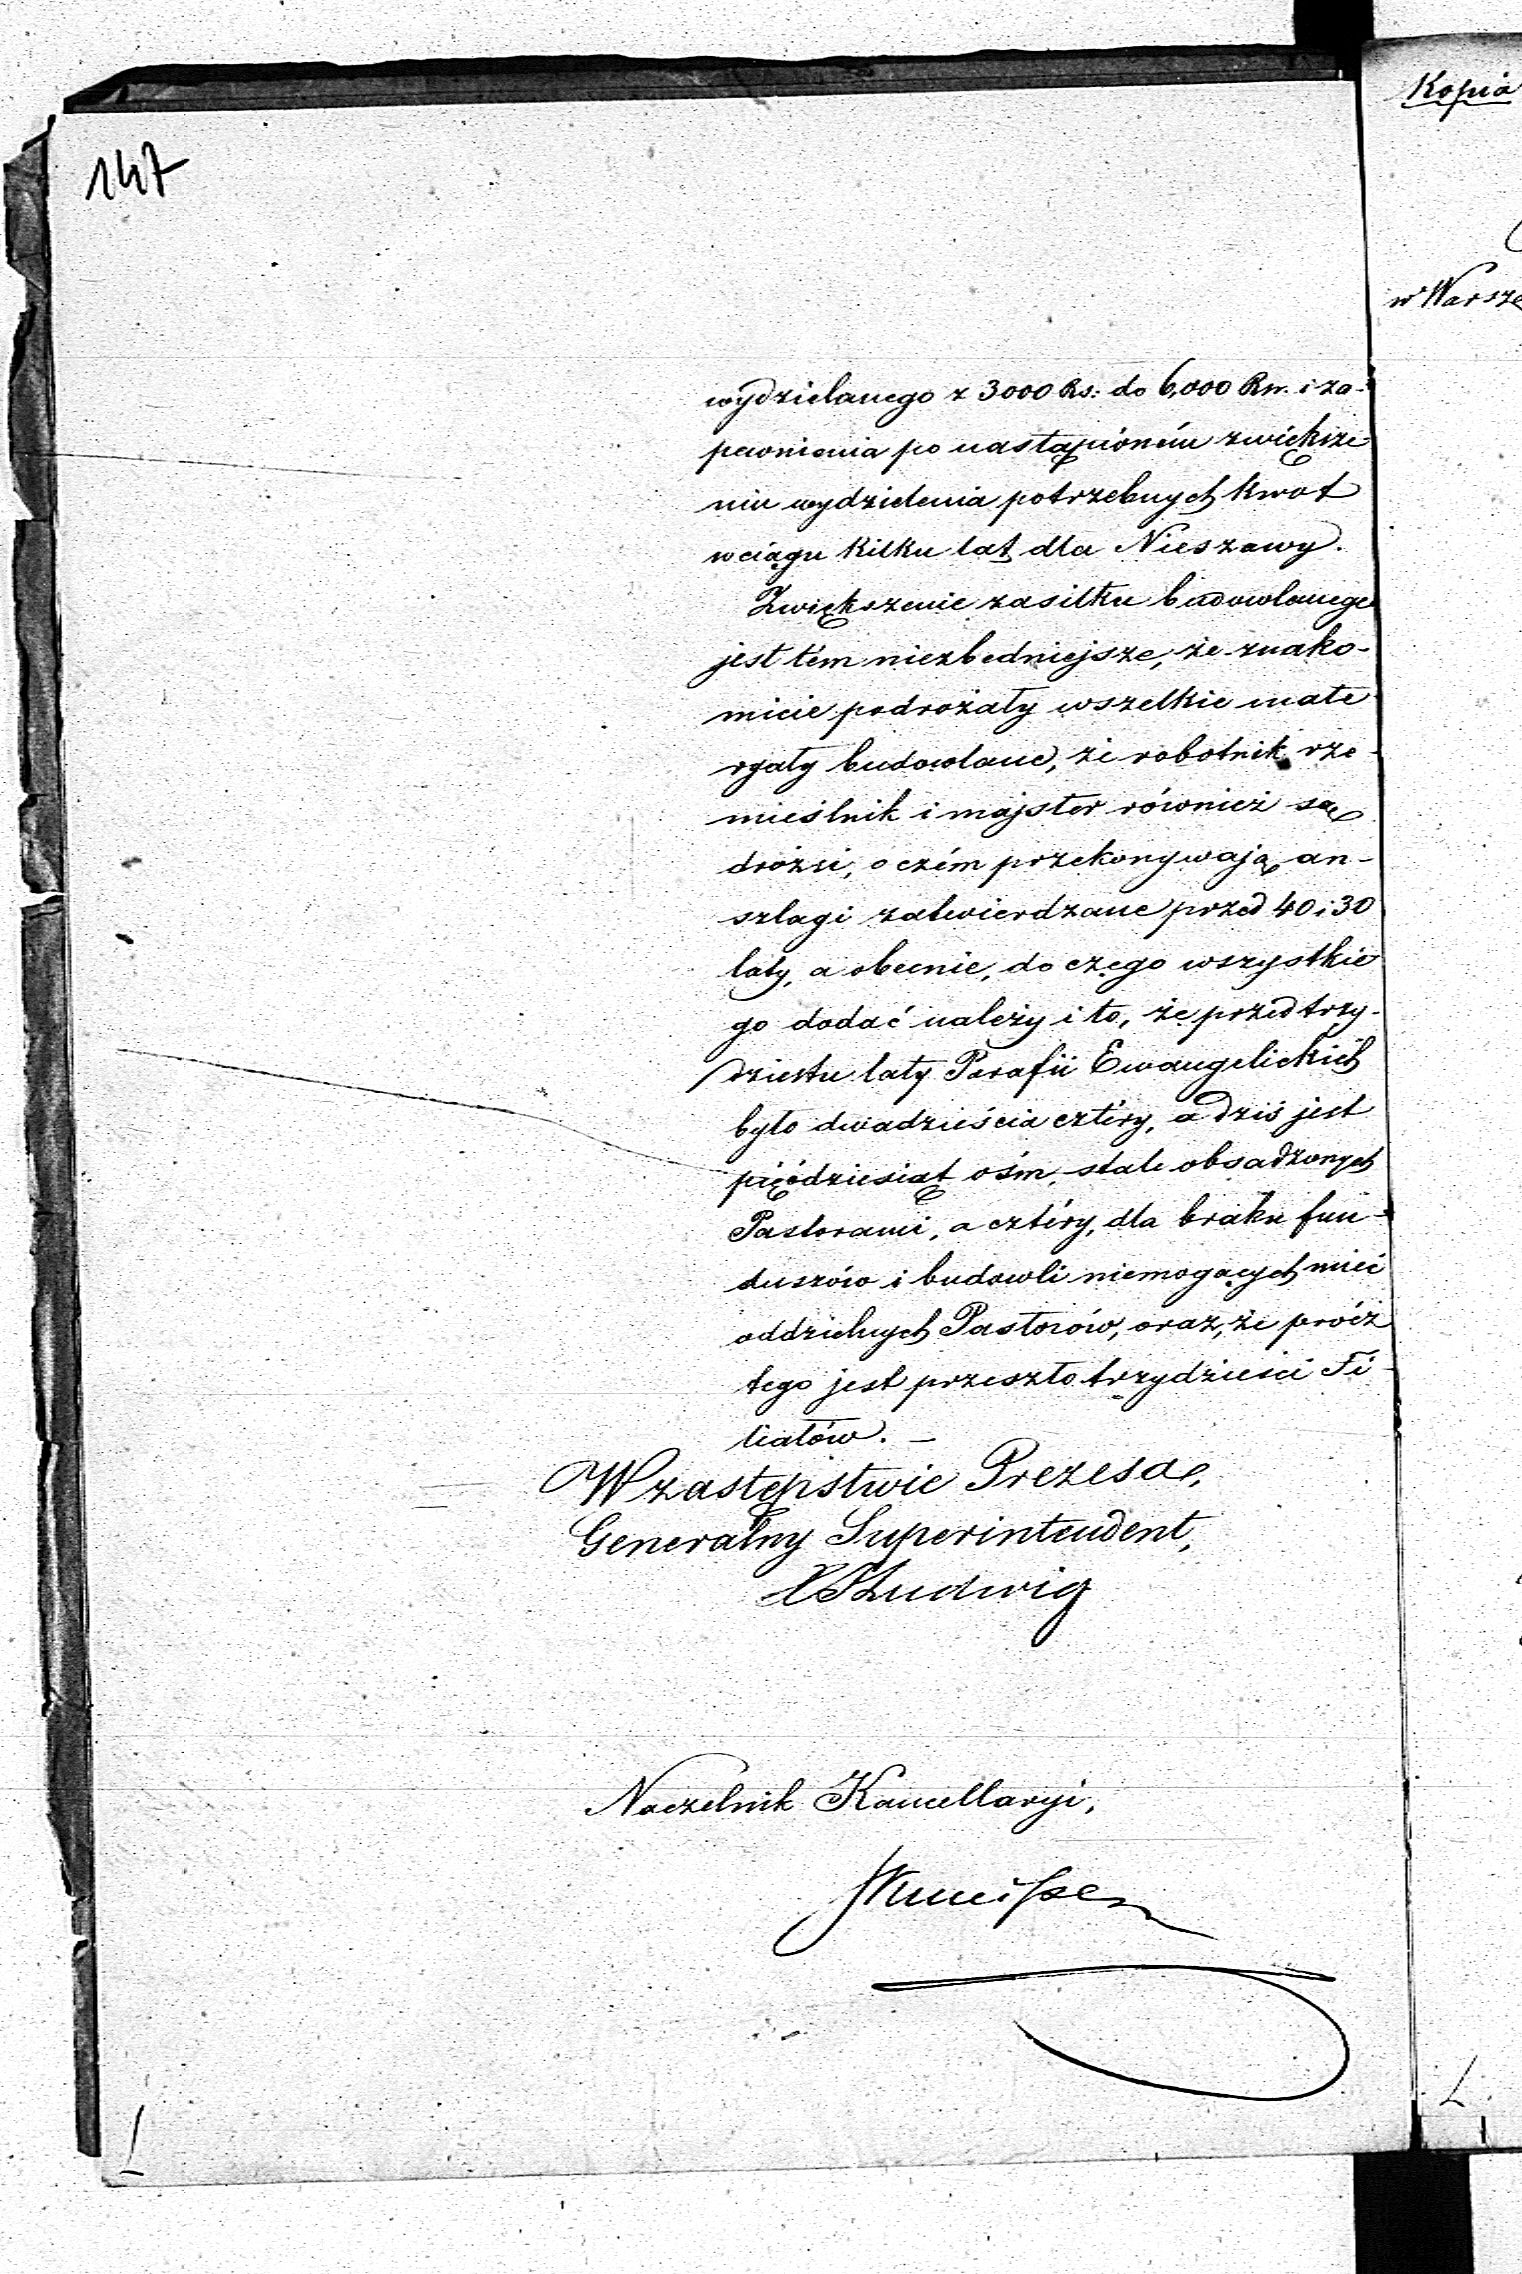 147
wydzielanego z 3000 Rs: do 6,000 Rsr. i za-
pewnienia po nastąpioném zwiększe-
niu wydzielenia potrzebnych kwot
w ciągu kilku lat dla Nieszawy.
Zwiększenie zasiłku budowlanego
jest tém niezbędniejsze, że znako-
micie podrożały wszelkie mate-
ryały budowlane, że robotnik, rze-
mieślnik i majster również są
drożsi, o czém przekonywają an-
szlagi zatwierdzane przed 40 i 30
laty, a obecnie, do czego wszystkie-
go dodać należy i to, że przed trzy-
dziestu laty Parafii Ewangelickich
było dwadzieścia cztéry, a dziś jest
pięćdziesiąt ośm, stale obsadzonych
Pastorami, a cztéry, dla braku fun-
duszów i budowli niemogących mieć
oddzielnych Pastorów, oraz, że prócz
tego jest przeszło trzydzieści Fi-
liałów. —
W zastępstwie Prezesa,
Generalny Superintendent,
Ludwig
Naczelnik Kancellaryi,
Kopia
w Warsza